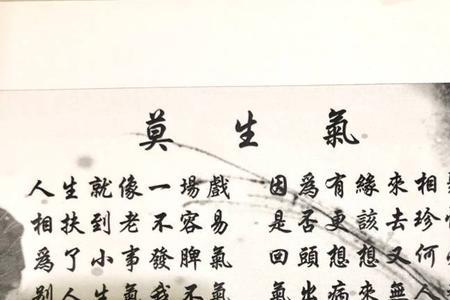 莫生氣
人生就像一場戲 因爲有緣來相
相扶到老不容易 是否更該去珍
爲了小事發脾氣 回頭想想又何
別人生氣我不氣 氣出病來無人